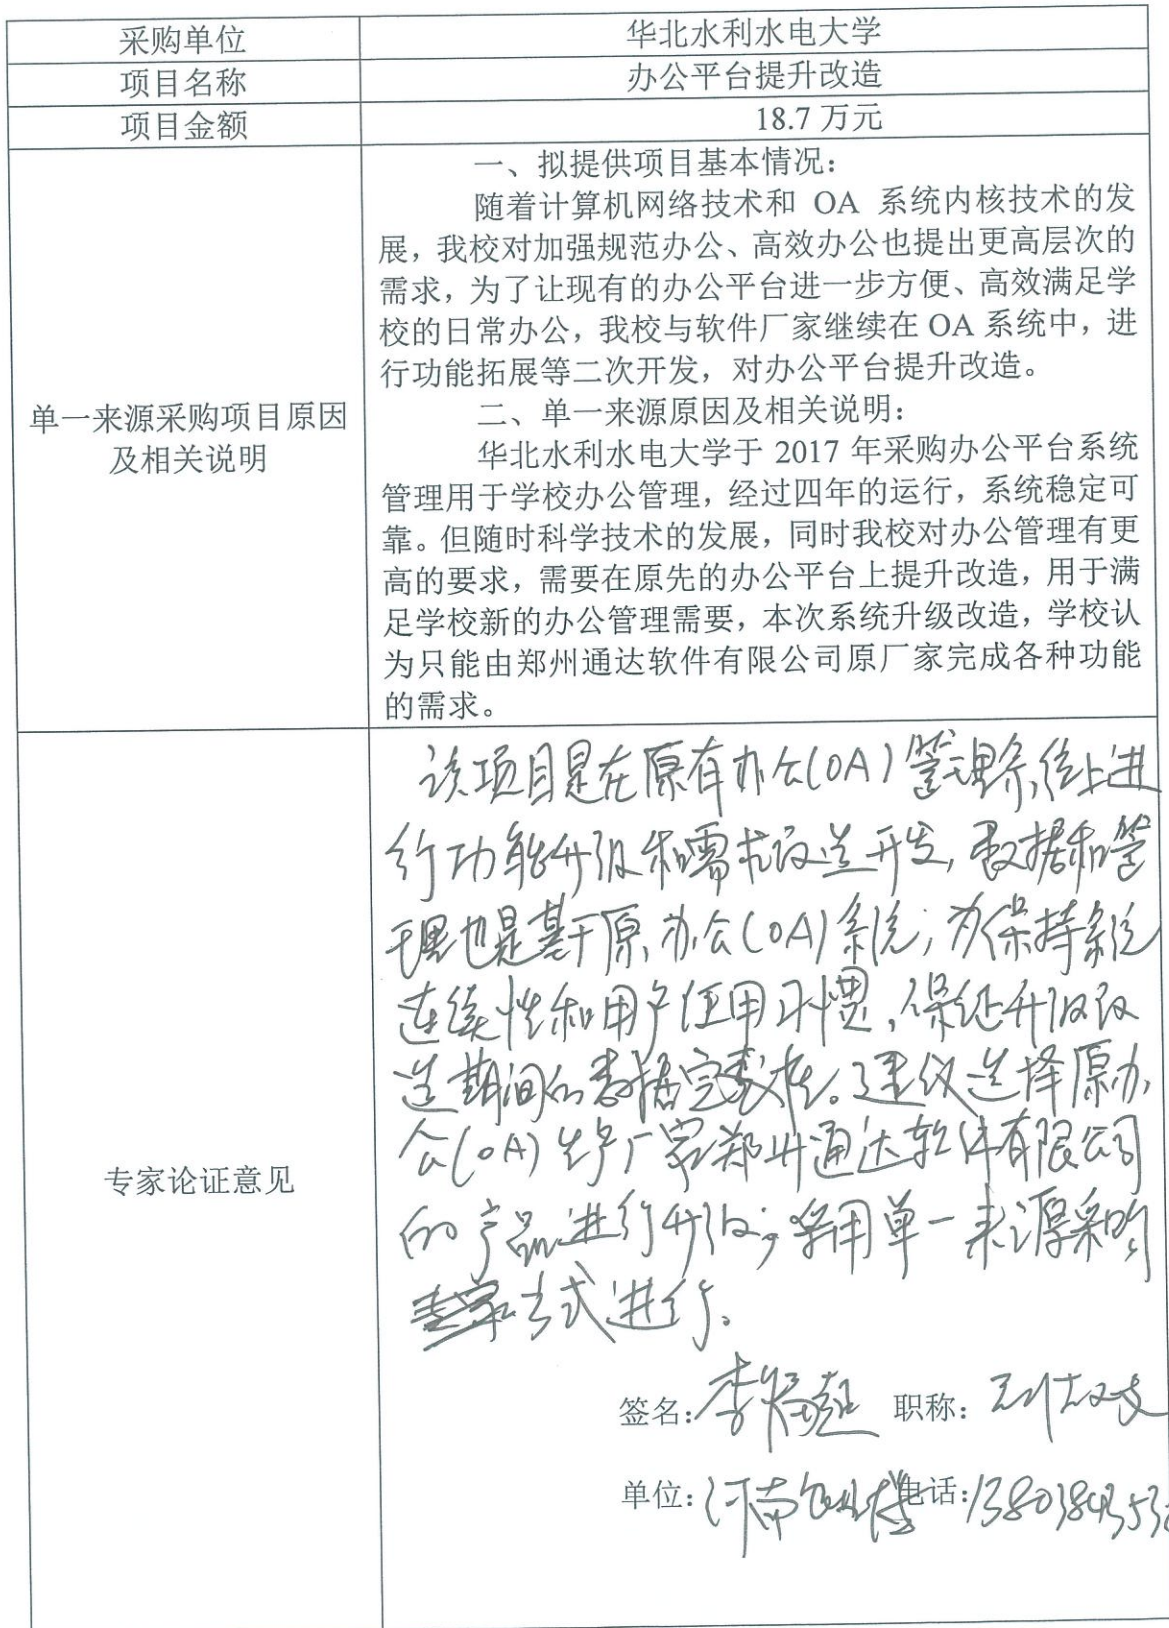 采购单位
华北水利水电大学
项目名称
办公平台提升改造
项目金额
18.7 万元
单一来源采购项目原因
及相关说明
一、拟提供项目基本情况：
随着计算机网络技术和 OA 系统内核技术的发
展，我校对加强规范办公、高效办公也提出更高层次的
需求，为了让现有的办公平台进一步方便、高效满足学
校的日常办公，我校与软件厂家继续在 OA 系统中，进
行功能拓展等二次开发，对办公平台提升改造。
二、单一来源原因及相关说明：
华北水利水电大学于 2017 年采购办公平台系统
管理用于学校办公管理，经过四年的运行，系统稳定可
靠。但随时科学技术的发展，同时我校对办公管理有更
高的要求，需要在原先的办公平台上提升改造，用于满
足学校新的办公管理需要，本次系统升级改造，学校认
为只能由郑州通达软件有限公司原厂家完成各种功能
的需求。
专家论证意见
该项目是在原有办公(OA)管理系统上进
行功能升级和需求改造开发，数据和管
理也是基于原办公(OA)系统；为保持系统
连续性和用户使用习惯，保证升级改
造期间的数据完整性。建议选择原办
公(OA)生产厂家郑州通达软件有限公司
的产品进行升级；采用单一来源采购
方式进行。
签名：李 职称：副教授
单位：河南 电话：